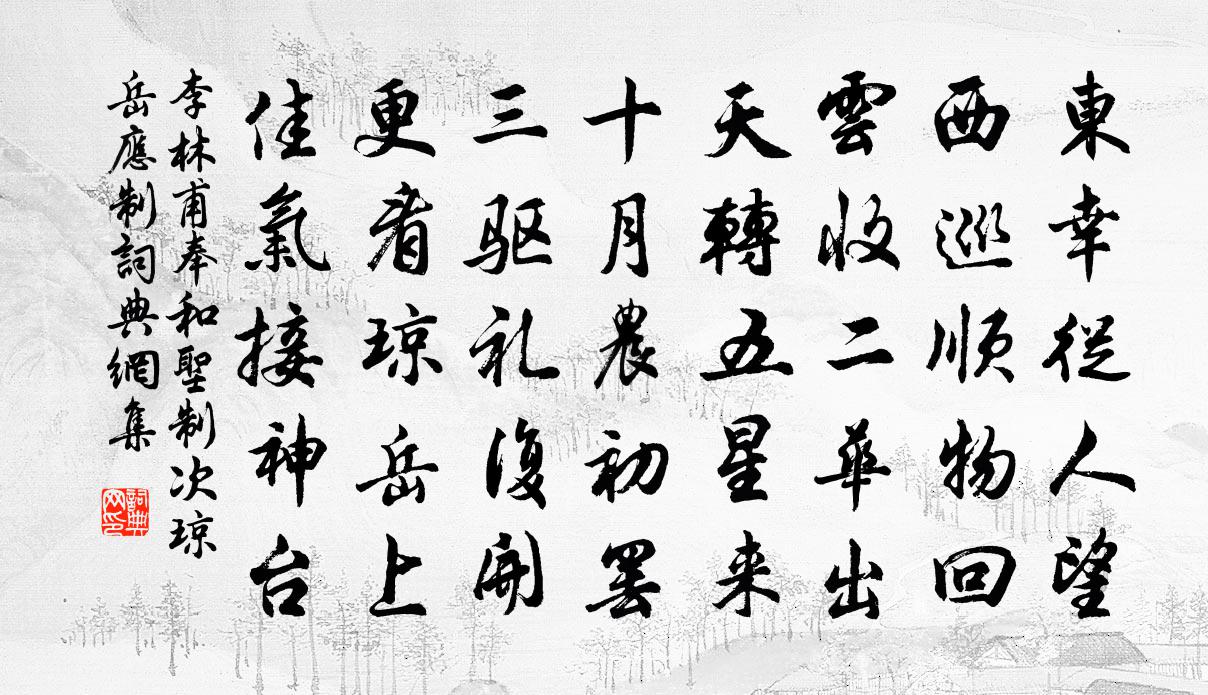 東幸從人望
西巡顺物回
雲收二華出
天轉五星来
十月農初罢
三驱礼復開
更看琼岳上
佳氣接神台
李林甫奉和聖制次琼
岳應制詞典網集
詞典网印